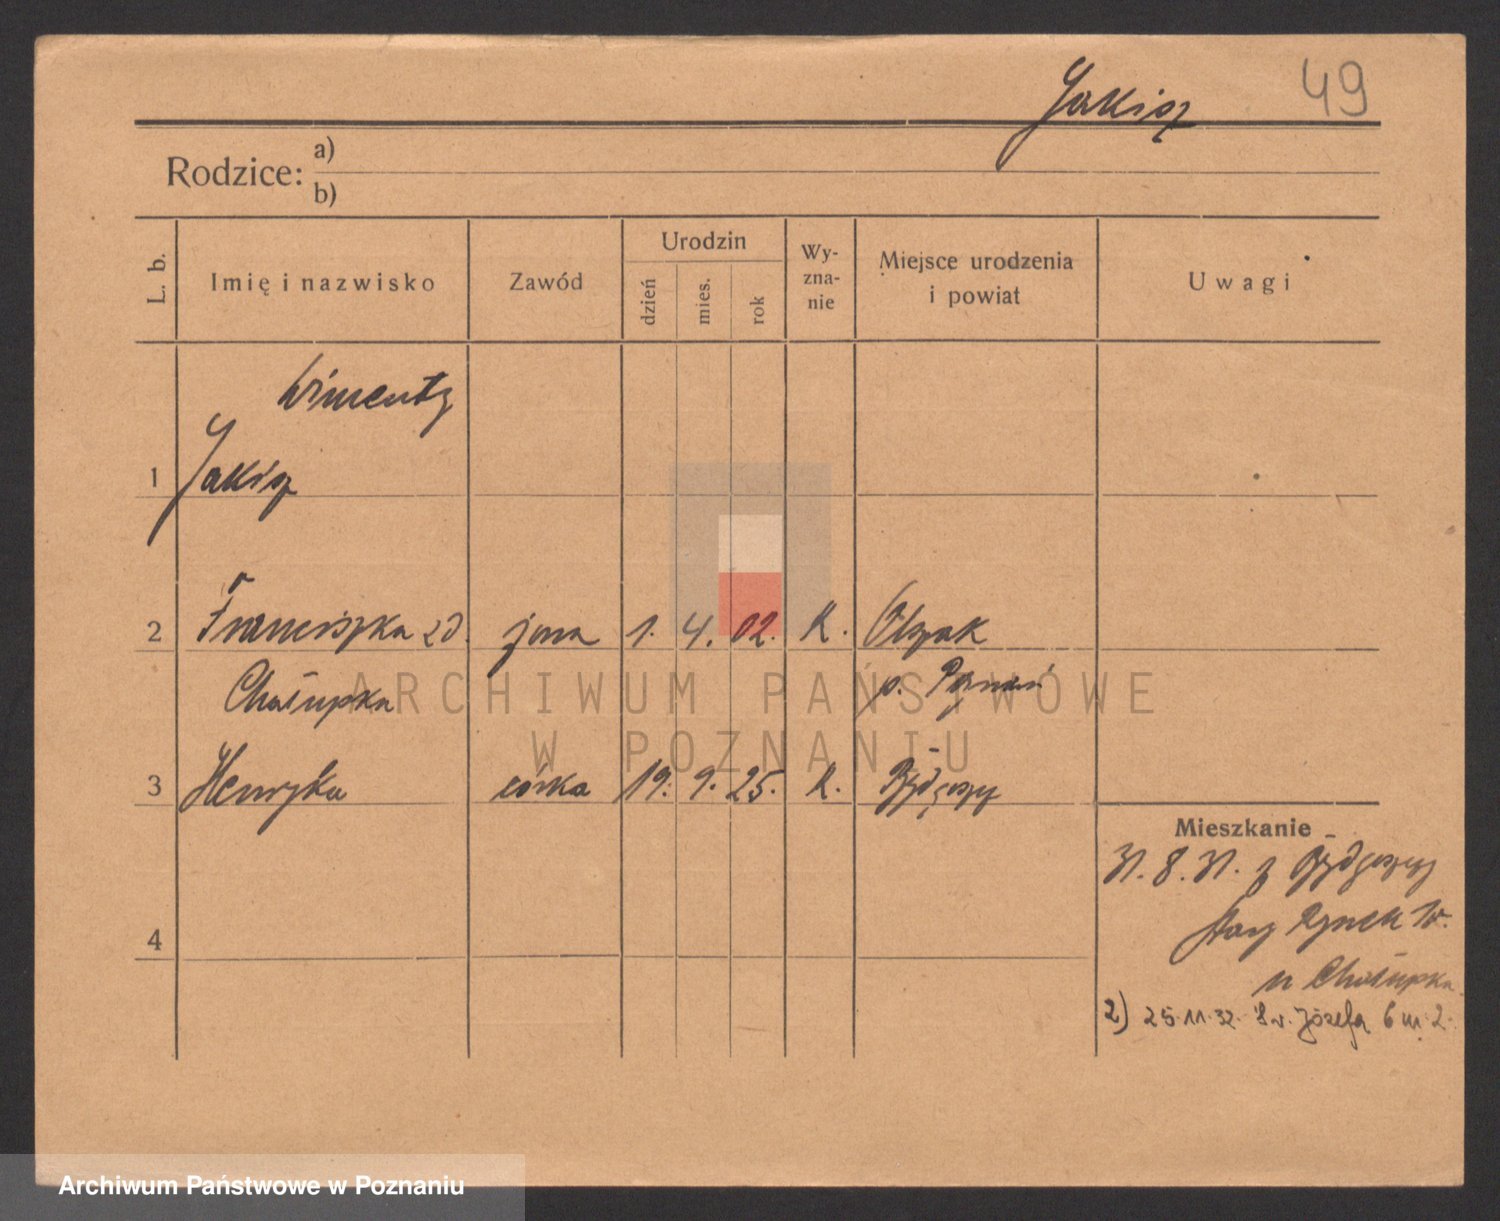 Jakisz 49
Rodzice: a)
b)
L. b. Imię i nazwisko Zawód Urodzin dzień mies. rok Wyznanie Miejsce urodzenia i powiat Uwagi
1 Jakisz
2 Franciszka zd. żona 1. 4. 02. K.
Chałupka p. Poznań
3 Henryka córka 19. 9. 25. K. Bydgoszcz
Mieszkanie
31. 8. 31. z Bydgoszczy
Stary Rynek
4
u Chałupka
2) 25.11.32. Św. Józefa 6 m. 2.
ARCHIWUM PAŃSTWOWE
W POZNANIU
Archiwum Państwowe w Poznaniu